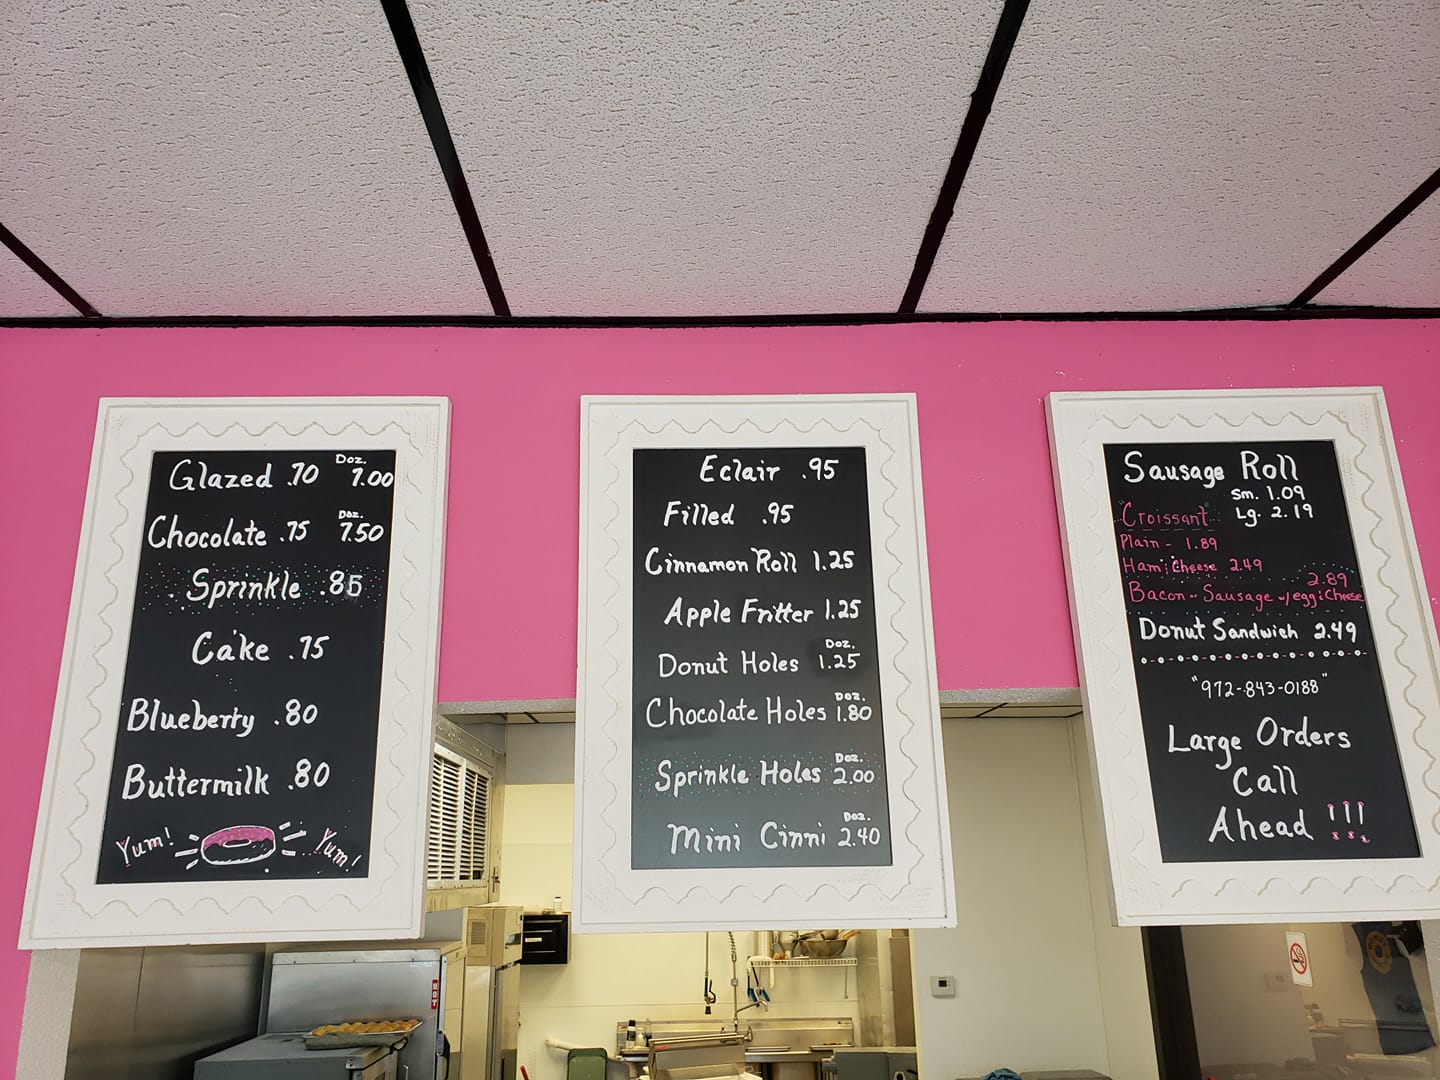 Glazed .70 Doz. 7.00
Chocolate .75 Doz. 7.50
Sprinkle .85
Cake .75
Blueberry .80
Buttermilk .80
Yum! Yum!
Eclair .95
Filled .95
Cinnamon Roll 1.25
Apple Fritter 1.25
Donut Holes Doz. 1.25
Chocolate Holes Doz. 1.80
Sprinkle Holes Doz. 2.00
Mini Cinni Doz. 2.40
Sausage Roll
Sm. 1.09
"Croissant" Lg. 2.19
Plain - 1.89
Ham & Cheese 2.49
Bacon or Sausage w/egg & Cheese 2.89
Donut Sandwich 2.49
"972-843-0188"
Large Orders
Call
Ahead !!!